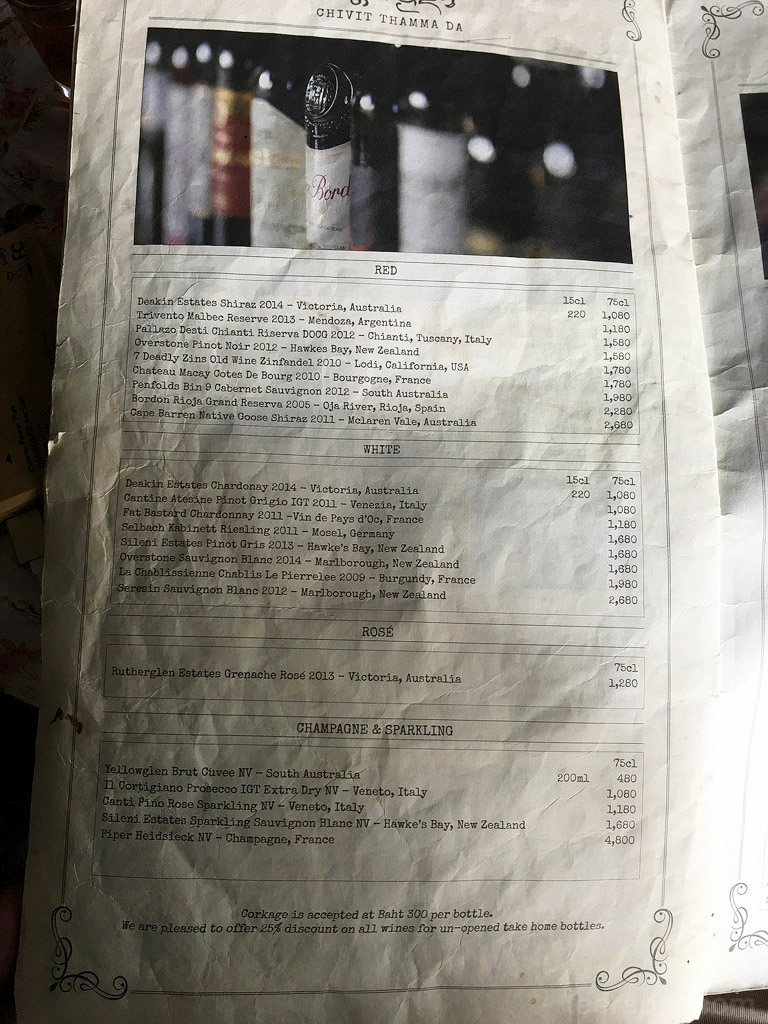 CHIVIT THAMMA DA
Bord
RED
15cl 75cl
Deakin Estates Shiraz 2014 - Victoria, Australia 220 1,080
Trivento Malbec Reserve 2013 - Mendoza, Argentina 1,180
Pallazo Desti Chianti Riserva DOCG 2012 - Chianti, Tuscany, Italy 1,580
Overstone Pinot Noir 2012 - Hawkes Bay, New Zealand 1,580
7 Deadly Zins Old Wine Zinfandel 2010 - Lodi, California, USA 1,780
Chateau Macay Cotes De Bourg 2010 - Bourgogne, France 1,780
Penfolds Bin 9 Cabernet Sauvignon 2012 - South Australia 1,980
Bordon Rioja Grand Reserva 2005 - Oja River, Rioja, Spain 2,280
Cape Barren Native Goose Shiraz 2011 - Mclaren Vale, Australia 2,680
WHITE
15cl 75cl
Deakin Estates Chardonay 2014 - Victoria, Australia 220 1,080
Cantine Atesine Pinot Grigio IGT 2011 - Venezia, Italy 1,080
Fat Bastard Chardonnay 2011 -Vin de Pays d'Oc, France 1,180
Selbach Kabinett Riesling 2011 - Mosel, Germany 1,680
Sileni Estates Pinot Gris 2013 - Hawke's Bay, New Zealand 1,680
Overstone Sauvignon Blanc 2014 - Marlborough, New Zealand 1,680
La Chablissienne Chablis Le Pierrelee 2009 - Burgundy, France 1,980
Seresin Sauvignon Blanc 2012 - Marlborough, New Zealand 2,680
ROSÉ
75cl
Rutherglen Estates Grenache Rosé 2013 - Victoria, Australia 1,280
CHAMPAGNE & SPARKLING
75cl
Yellowglen Brut Cuvee NV - South Australia 200ml 480
Il Cortigiano Prosecco IGT Extra Dry NV - Veneto, Italy 1,080
Canti Pino Rose Sparkling NV - Veneto, Italy 1,180
Sileni Estates Sparkling Sauvignon Blanc NV - Hawke's Bay, New Zealand 1,680
Piper Heidsieck NV - Champagne, France 4,800
Corkage is accepted at Baht 300 per bottle.
We are pleased to offer 25% discount on all wines for un-opened take home bottles.